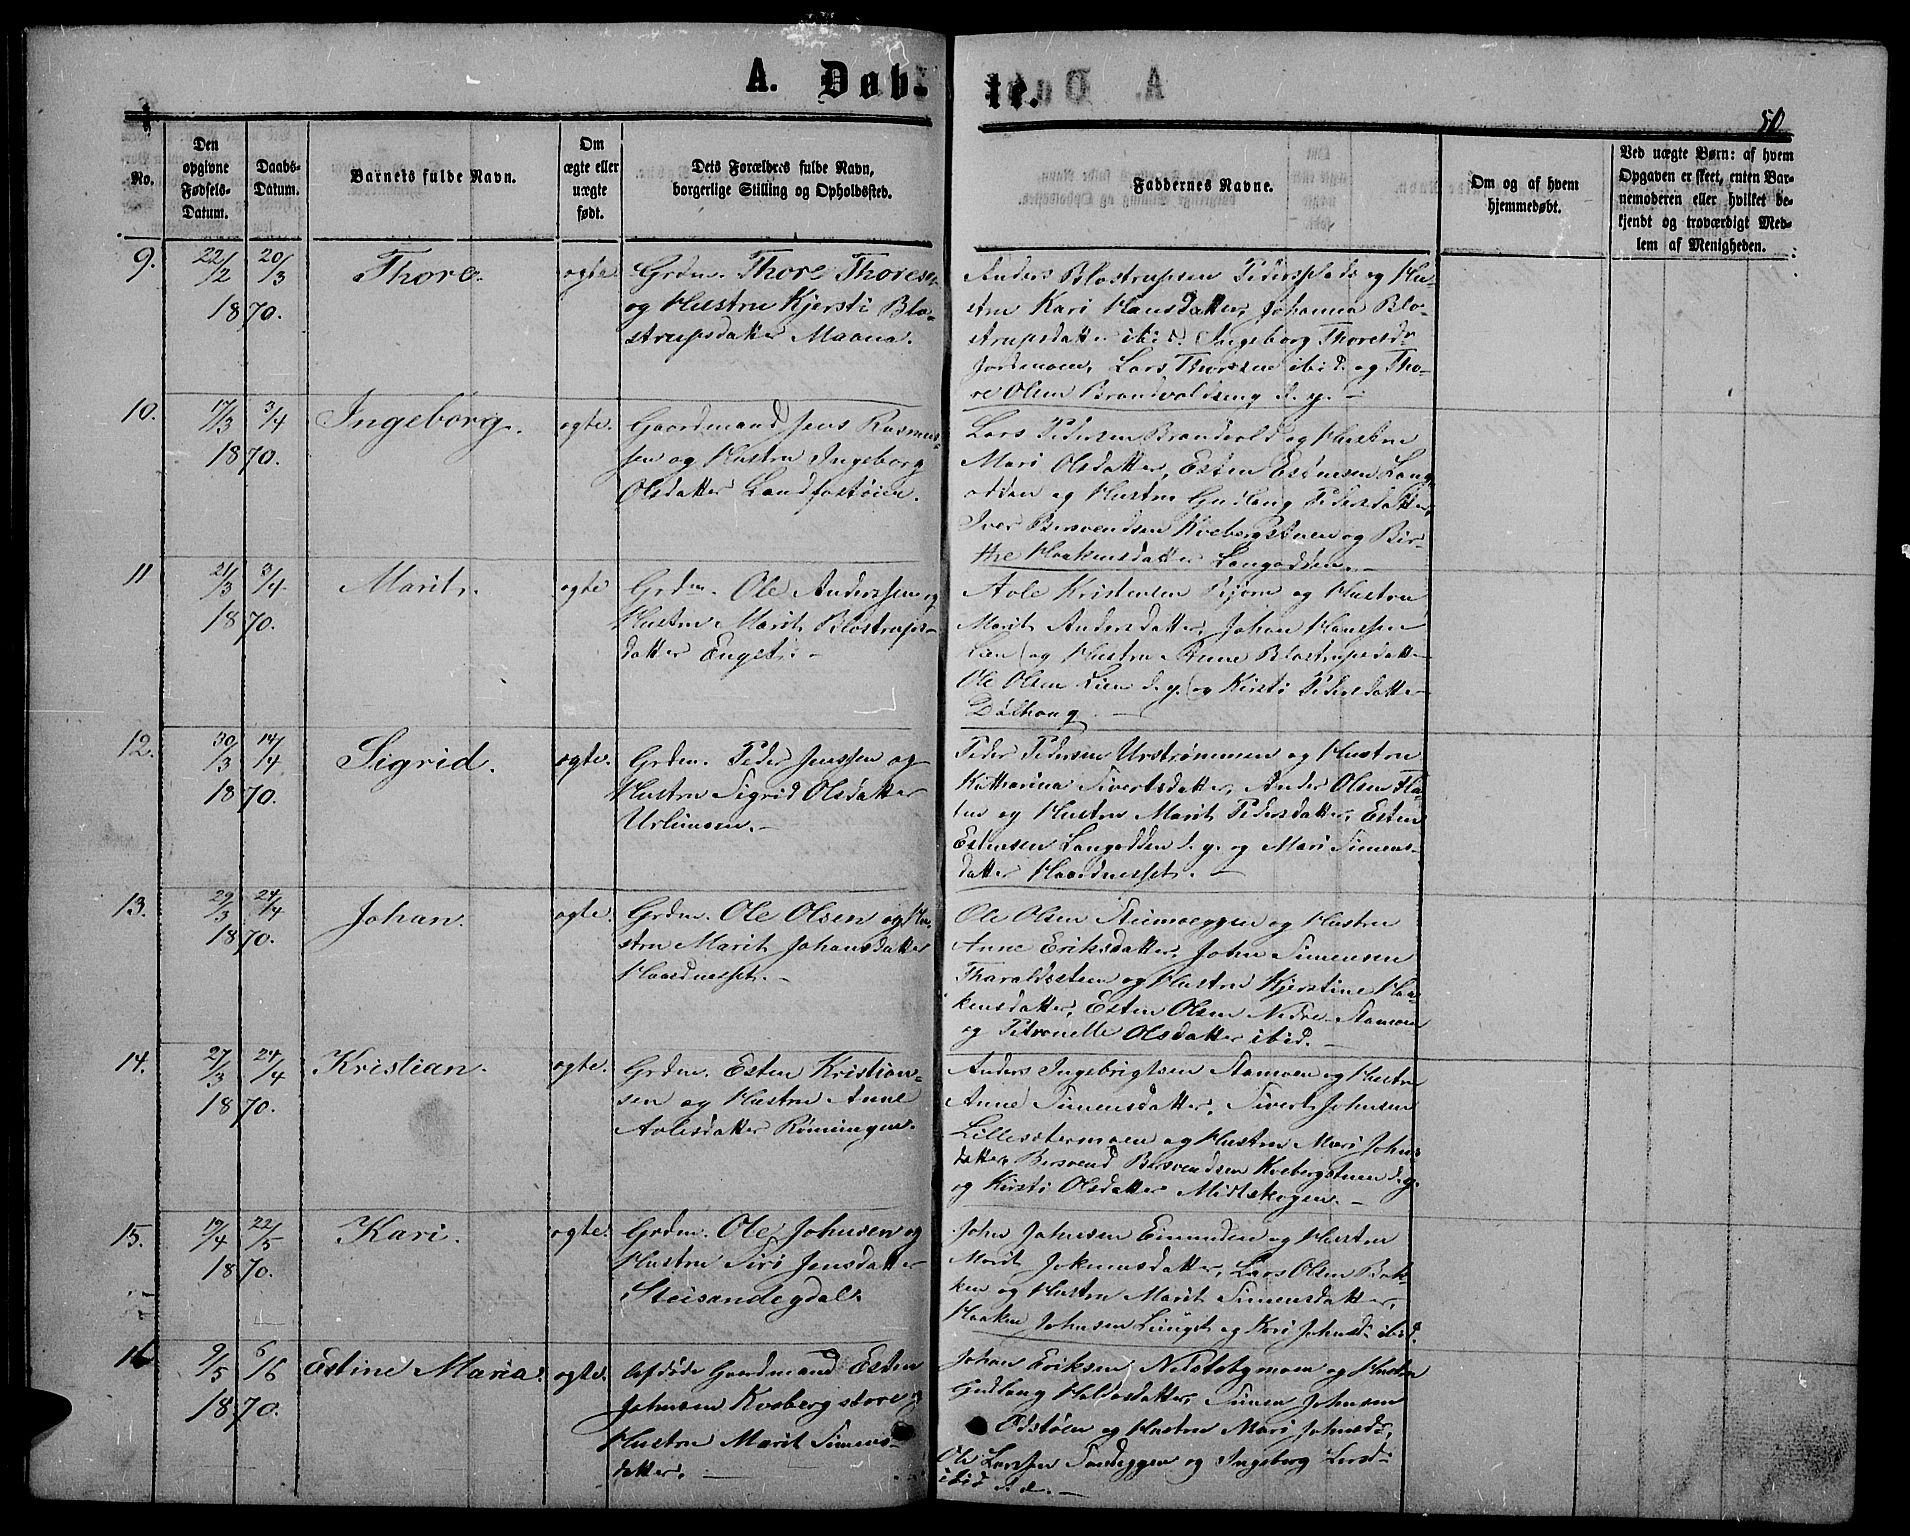 A. Døbte.
50
No.
Den opgivne Fødsels-Datum.
Daabs-Datum.
Barnets fulde Navn.
Om ægte eller uægte født.
Dets Forældres fulde Navn, borgerlige Stilling og Opholdssted.
Faddernes Navne.
Om og af hvem hjemmedøbt.
Ved uægte Børn: af hvem Opgaven er skeet, enten Barnemoderen eller hvilket bekjendt og troværdigt Medlem af Menigheden.
9. 22/2 20/3 Thore. ægte. Grdm. Thore Thoresen
1870. og Hustru Kjersti Blo-
strupsdatter Moana.
Anders Blostrupsen Pedersplads og Hu-
stru Kari Hansdatter, Johanna Blo-
strupsdatter ibid. Ingeborg Thoresdr
Jordmoen, Lars Thorssen ibid. og Tho-
re Olsen Brandvoldseng d. y. -
10. 17/3 3/4 Ingeborg. ægte. Gaardmand Jens Rasmus-
1870. sen og Hustru Ingeborg
Olsdatter Landfastøien.
Lars Pedersen Brandvold og Hustru
Mari Olsdatter, Esten Estensen Lang-
odden og Hustru Gudlaug Pedersdatter,
Iver Bersvendsen Kvebergstuen og Bir-
the Haakensdatter Langodden. -
11 21/3 3/4 Marit. ægte Grdm. Ole Anderssen og
1870. Hustru Marit Blostrups-
datter Enget. -
Avle Kristensen Bjørn og Hustru
Marit Andersdatter, Johan Hanssen
Lien og Hustru Anne Blostrupsdatter
Ole Olsen Lien d. y. og Kirsti Pedersdatter
Dølhaug. -
12. 30/3 14/4 Sigrid. ægte. Grdm. Peder Jenssen og
1870. Hustru Sigrid Olsdatter
Urlimoen. -
Peder Pedersen Urstrømmen og Hustru
Katharina Sivertsdatter, Ander Olsen Fla-
ten og Hustru Marit Pedersdatter, Esten
Estensen Langodden d. y. og Mari Simens-
datter Haardnesset. -
13. 29/3 24/4 Johan. ægte. Grdm. Ole Olsen og Hu-
1870. stru Marit Johansdatter
Haardnesset. -
Ole Olsen Steimoeggen og Hustru
Anne Eriksdatter, John Simensen
Tharaldssteen og Hustru Kjerstine Haa-
kensdatter, Esten Olsen Nedre-Aamoen
og Petronelle Olsdatter ibid. -
14. 27/3 24/4 Kristian. ægte. Grdm. Esten Kristian-
1870. sen og Hustru Anne
Avlesdatter Rømingen.
Anders Ingebrigtsen Aamoen og Hustru
Anne Simensdatter, Sivert Johnsen
Lillesætermoen og Hustru Mari Johns-
datter, Bersvend Bersvendsen Kvebergstuen d. y.
og Kirsti Olsdatter Midtskogen. -
15. 19/4 22/5 Kari. ægte. Grdm. Ole Johnsen og
1870. Hustru Siri Jensdatter
Steisandegdal.
John Johnsen Einunden og Hustru
Marit Jokumsdatter, Lars Olsen Bak-
ken og Hustru Marit Simensdatter,
Haaken Johnsen Lunget og Kari Johnsd. ibid.
16 9/5 6/6 Estine Maria. ægte. Afdøde Gaardmand Esten
1870. Johnsen Kveberg store og
Hustru Marit Simens-
datter. -
Johan Eriksen Nedstebymoen og Hustru
Gudlaug Haldosdatter, Simen Johnsen
Odstøen og Hustru Mari Johnsdr,
Ole Larssen Sandeggen og Ingeborg Larsd.
ibid